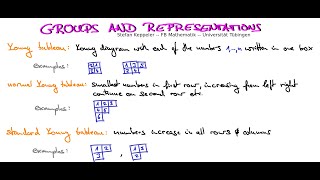 GROUPS AND REPRESENTATIONS
Stefan Keppeler – FB Mathematik – Universität Tübingen
Young tableau: Young diagram with each of the numbers 1,..,n written in one box
examples:
normal Young tableau: smallest numbers in first row, increasing from left right
continue on second row etc.
example:
1 2 3
4 5
6
standard Young tableau: numbers increase in all rows & columns
examples:
1 2
3
,
1 3
2